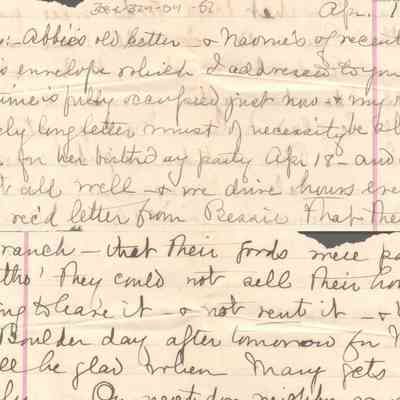 Apr. 1
: Abbie's old letter - & Naomi's of recent
s envelope which I addressed to you
time is fully occupied just now - & my
ely long letter must of necessity be a
for her birthday party Apr 18 - and
all well - & we drive hours eve
rec'd letter from Bessie that the
ranch - that their goods were pa
tho' They could not sell their ho
ng to leave it - & not rent it - &
Boulder day after tomorrow for
ll be glad when Mary gets